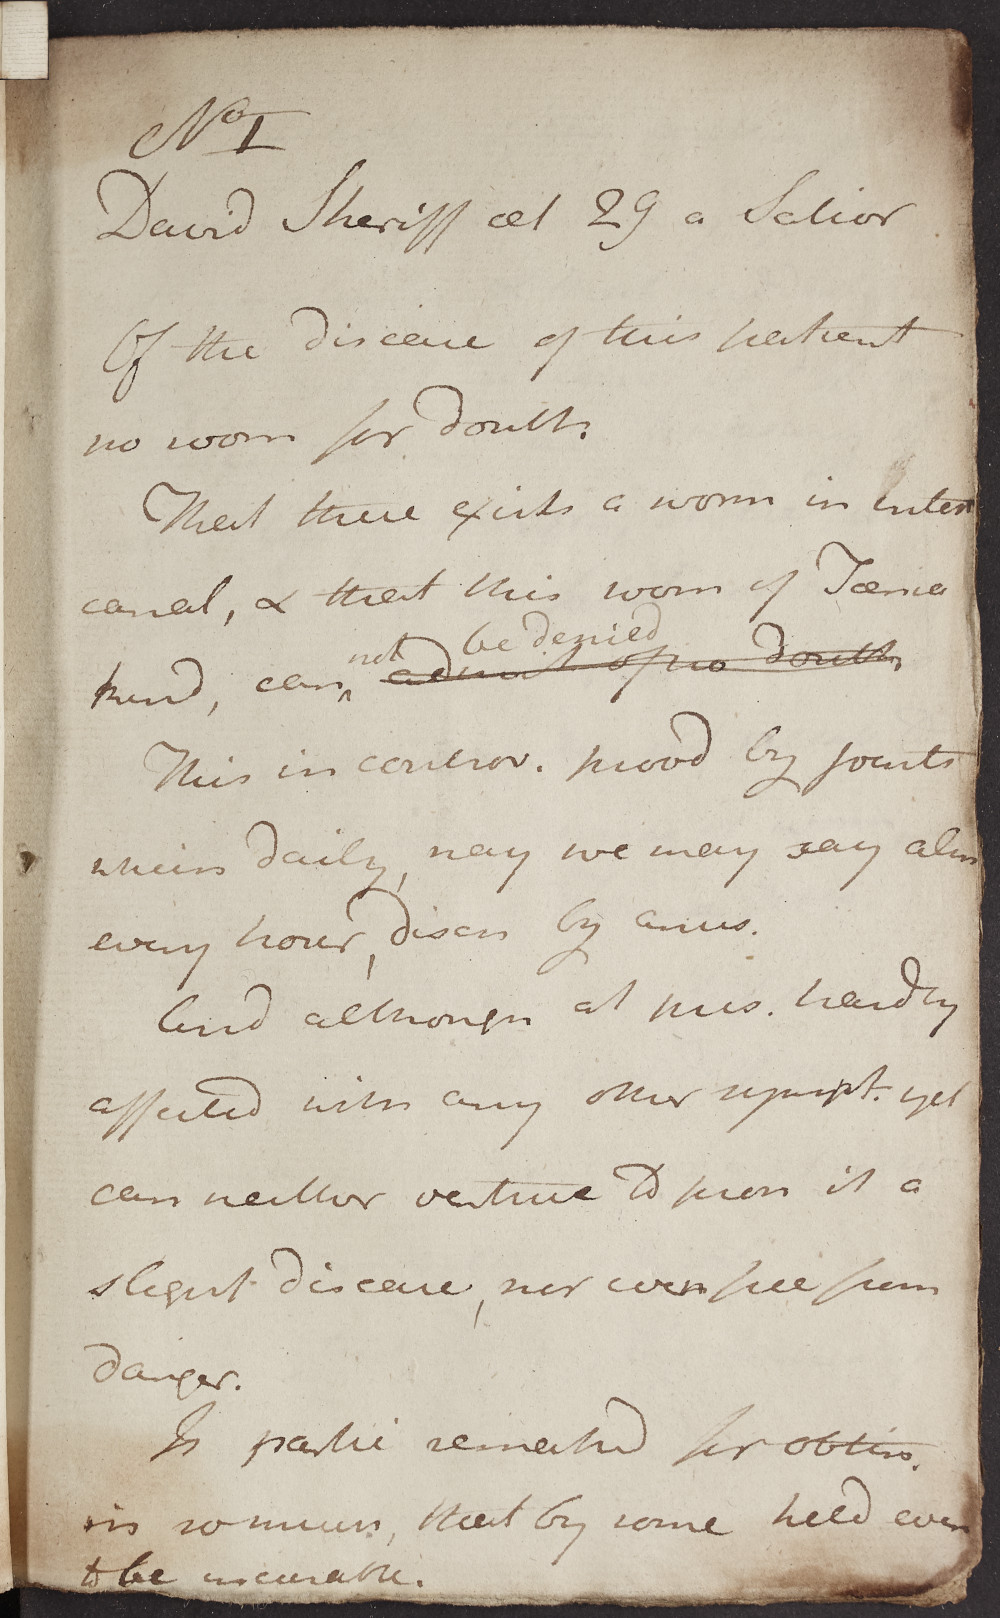 No I
David Sheriff æt 29 a Sailor
Of the disease of this patient
no room for doubt.
That there exists a worm in intest
canal, & that this worm of Tænia
not be denied
kind, can admit of no doubt,
This incontrov. proved by joints
which daily, nay we may say alm
every hour, disch by anus.
And although at pres. hardly
affected with any other sympt. yet
can neither venture to pron it a
slight disease, nor even free from
danger.
Is partic remarked for obstin.
in so much, that by some held even
to be incurable.